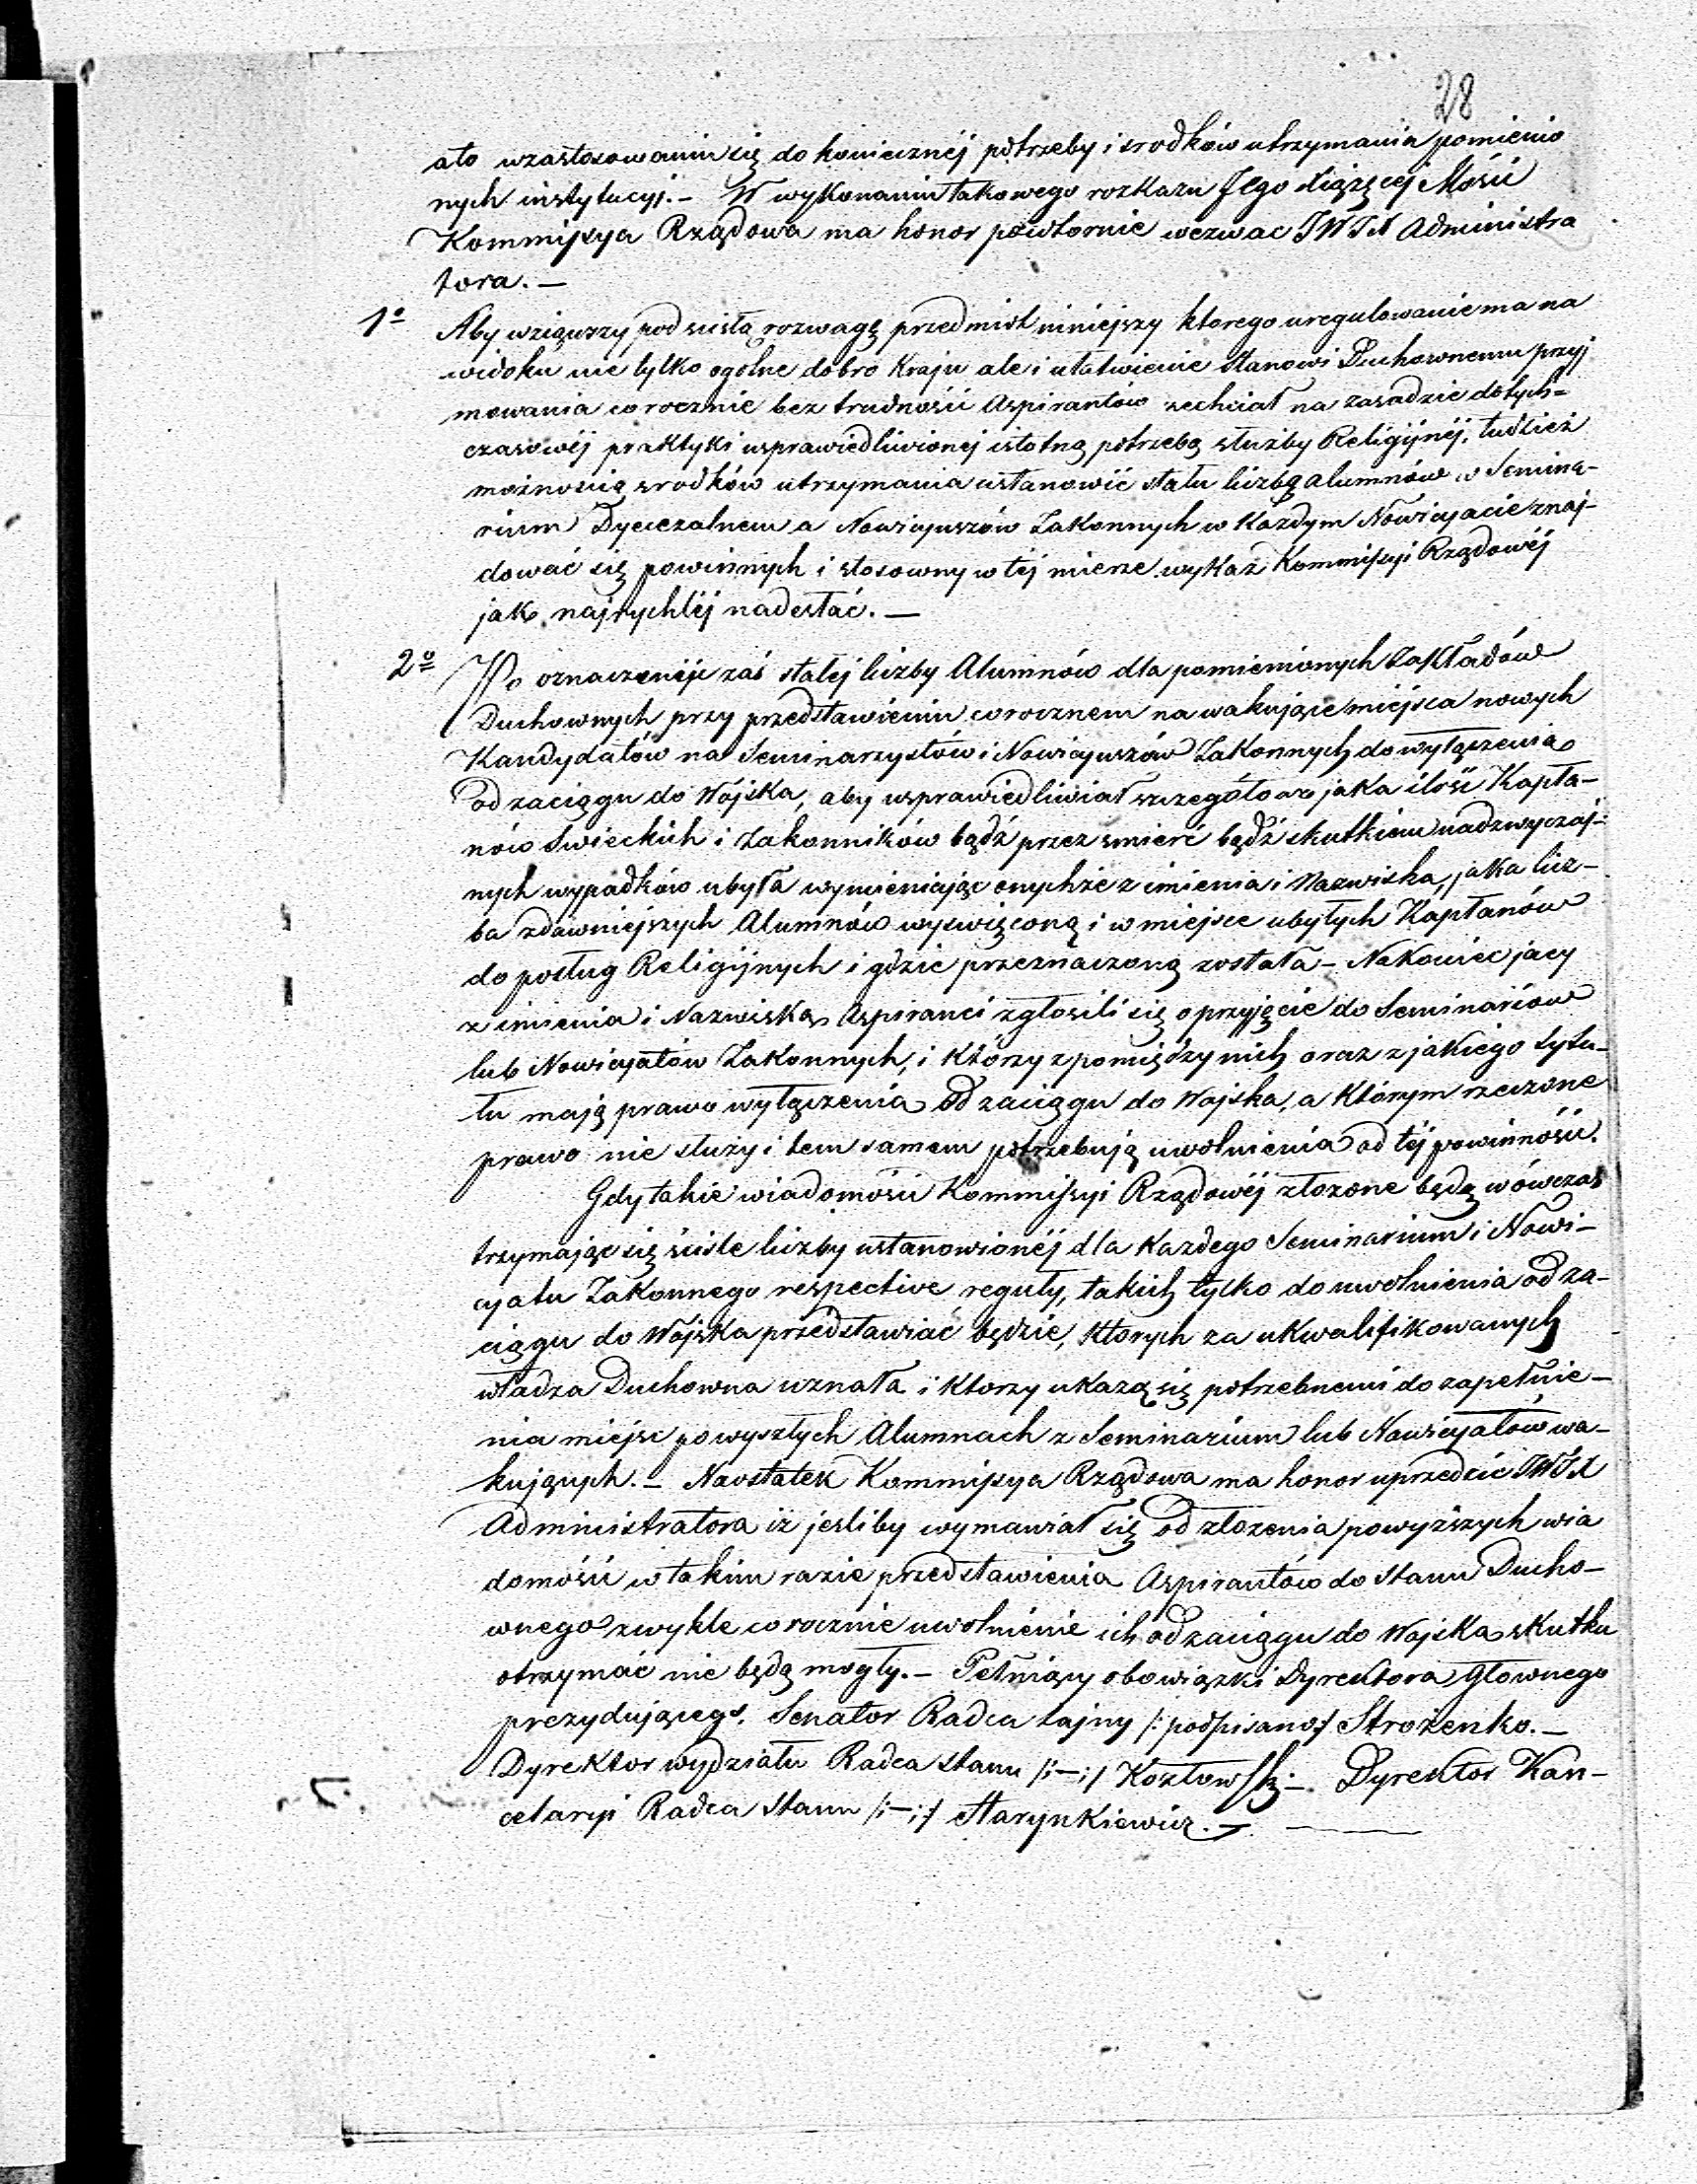 28
ato wzastosowaniu się do koniecznéj potrzeby i srodków utrzymania pomienio
nych instytucyj. – W wykonaniu takowego rozkazu Jego Xiążęcej Mości
Kommissya Rządowa ma honor powtornie wezwac JWJX Administra
tora. —
1o Aby wziąwszy pod scisłą rozwagę przedmiot niniejszy ktorego uregulowanie ma na
widoku nie tylko ogolne dobro Kraju ale i ułatwienie Stanowi Duchownemu przyj
mowania corocznie bez trudności Aspirantów zechciał na zasadzie dotych=
czasowéj praktyki usprawiedliwionej istotną potrzebą służby Religijnéj, tudzież
możnością srodków utrzymania ustanowić stałą liczbę alumnów w Semina-
rium Dyecezalnem a Nowicyuszów Zakonnych w Każdym Nowicyacie znaj-
dować się powinnych i stosowny w téj mierze wykaz Kommissyi Rządowéj
jak najrychléj nadesłać. —
2o Po oznaczeniu zaś stałej liczby Alumnów dla pomienionych Zakładów
Duchownych przy przedstawieniu corocznem na wakujące miejsca nowych
Kandydatów na Seminarzystów i Nowicyuszów Zakonnych do wyłączenia
od zaciągu do Wojska, aby usprawiedliwiał szczegółowo jaka ilość Kapła-
nów Swieckich i Zakonników bądź przez smierć bądź skutkiem nadzwyczaj-
nych wypadków ubyła wymieniając onychże z imienia i Nazwiska, jaka licz-
ba zdawniejszych Alumnów wyswięconą i w miejsce ubyłych Kapłanów
do posług Religijnych i gdzie przeznaczoną została – Nakoniec jacy
z imienia i Nazwiska Aspiranci zgłosili się o przyjęcie do Seminariów
lub Nowicyatów Zakonnych, i którzy z pomiędzy nich oraz z jakiego tytu-
łu mają prawo wyłączenia od zaciągu do Wojska, a Którym rzeczone
prawo nie służy i tem samem potrzebują uwolnienia od téj powinności.
Gdy takie wiadomości Kommissyi Rządowéj złozone będą wówczas
trzymając się ściśle liczby ustanowionéj dla Każdego Seminarium i Nowi-
cyatu Zakonnego respective reguły, takich tylko do uwolnienia od za-
ciągu do Wojska przedstawiać będzie, Ktorych za ukwalifikowanych
władza Duchowna uznała i Ktorzy ukazą się potrzebnemi do zapełnie-
nia miejsc po wyszłych Alumnach z Seminarium lub Nowicyatów wa-
kujących. – Naostatek Kommissya Rządowa ma honor uprzedzić JWJX
Administratora iż jesliby wymawiał się od złozenia powyższych wia
domości w takim razie przedstawienia Aspirantów do Stanu Ducho-
wnego zwykle corocznie uwolnienie ich od zaciągu do Wojska skutku
otrzymać nie będą mogły. – Pełniący obowiązki Dyrektora Głownego
prezydującego, Senator Radca tajny /: podpisano :/ Strożenko. —
Dyrektor wydziału Radca Stanu /: – :/ Kozłowski. – Dyrektor Kan-
celaryi Radca Stanu /: – :/ Starynkiewicz. —